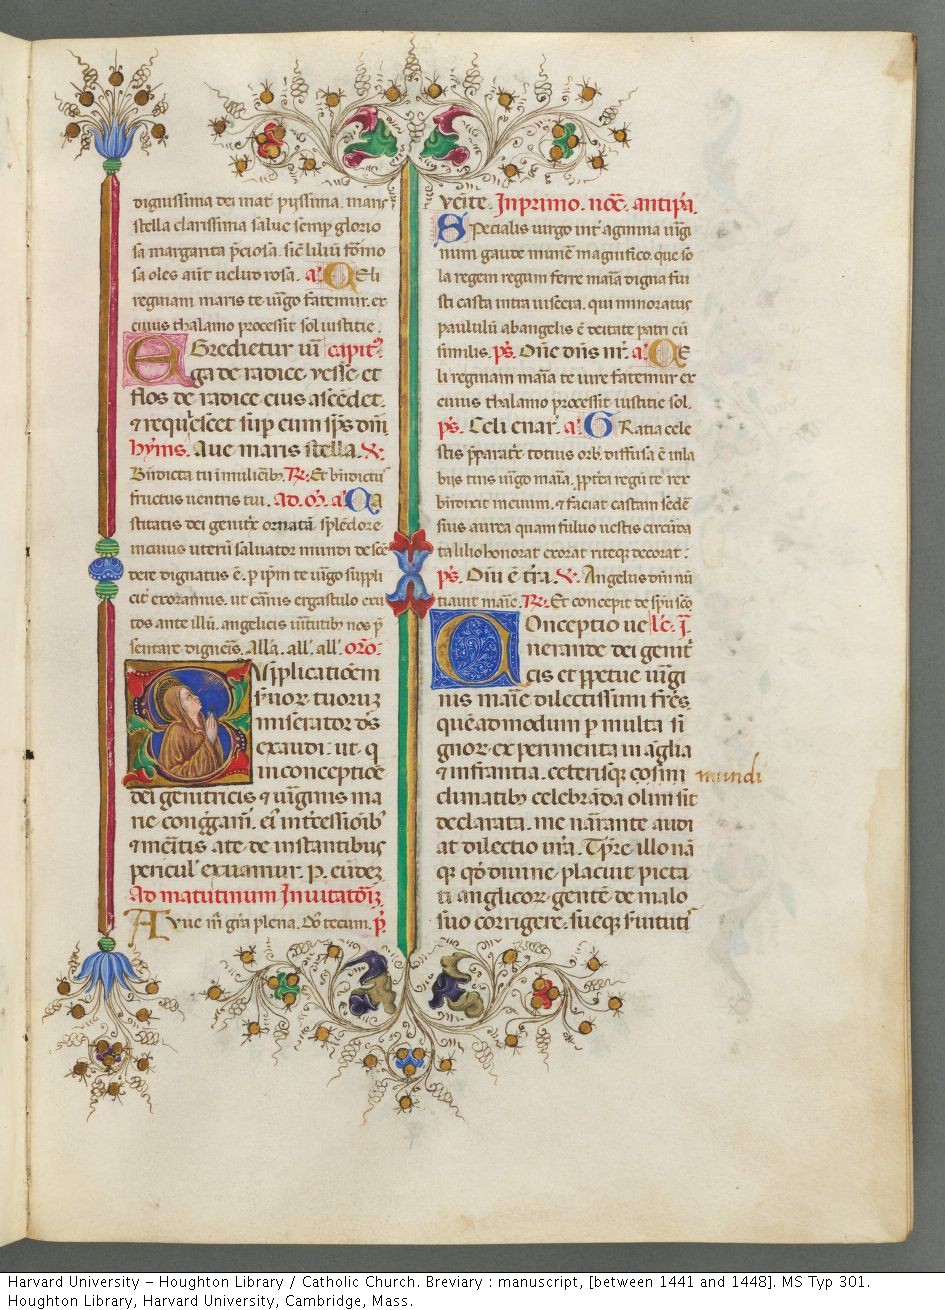 dignissima dei mat᷑ pijssima. maris
stella clarissima salue semp̱ glorio
sa margarita p̄ciosa. sic̄ liliū formo
sa oles aūt uelud rosa. a᷑ Celi
reginam maris te uirgo fatemur. ex
cuius thalamo processit sol iustitie.
Egredietur uir̄ capit᷑.
ga de radice yesse et
flos de radice eius ascēdet.
⁊ requ̓escet sup̱ eum sp̄s dn̄i
hymn᷑. Aue maris stella. ℣.
Bn̄dicta tu ī mulierib᷒. ℟. Et bn̄dict᷒
fructus uentris tui. Ad. m̄. a᷑ Ca
stitatis dei genitr̄ ornatā splēdore
in cuius uterū saluator mundi desce
dere dignatus ē. p̱ ip̄m te uirgo suppli
cit᷑ exoramus. ut carnis ergastulo exu
tos ante illū. angelicis uirtutib᷒ nos p̱
sentare digneris. All̄a. all̄. all̄. oro᷑.
Supplicatioēm
seruor̄ tuorum
miserator d̄s
exaudi. ut q̄
in conceptiōe
dei genitricis ⁊ uirginis ma
rie congregam̄. ei᷒ int̄cessiōib᷒
⁊ meritis a te de instantibus
pericul᷑ eruamur. P. eūdez
Ad matutinum Inuitatoriz
Aue m̄. gr̄a plena. Do᷒ tecum. p̄.
uenite. In primo. noc̄. antip̄a.
Specialis uirgo int̄ agmina uirgi
num gaude mune᷑ magnifico. que so
la regem regum ferre maīa digna fui
sti casta intra uiscera. qui minoratus
paululū ab angelis ē deitate patri cū
similis. p̄s. Dn̄e dn̄s nr̄. a᷑ Ce
li reginam maīa te uire fatemur ex
cuius thalamo processit iustitie sol.
p̄s. Celi enar᷑. a᷑ Gratia cele
stis p̄parat᷑ totius orb᷑. diffusa ē in la
biis tuis uirgo maīa. propt̓ea regū te rex
bn̄dixit in euum. ⁊ faciat castam sedē
sius aurea quam fuluo uestis circūda
ta lilio honorat exorat riteq̱ decorat:
p̄s. Dn̄i ē t̄ra. ℣. Angelus dn̄i nū
tiauit marie. ℟. Et concepit de sp̄u sc̄o
Onceptio ue lc̄. j᷑.
nerande dei genit̄
cis et perpetue uirgi
nis marie dilectissimi fr̄es.
quēadmodum p̱ multa si
gnor̄ experimenta in āglia
⁊ in frantia. ceterisq̱ cosini mundi
climatib᷒ celebrāda olim sit
declarata. me narrante audi
at dilectio ur̄a. Tp̄re illo nā
q̱ q̄ diuine placuit pieta
ti anglicor̄ gentē de malo
suo corrigere. sueq̱ seruituti
Harvard University – Houghton Library / Catholic Church. Breviary : manuscript, [between 1441 and 1448]. MS Typ 301.
Houghton Library, Harvard University, Cambridge, Mass.